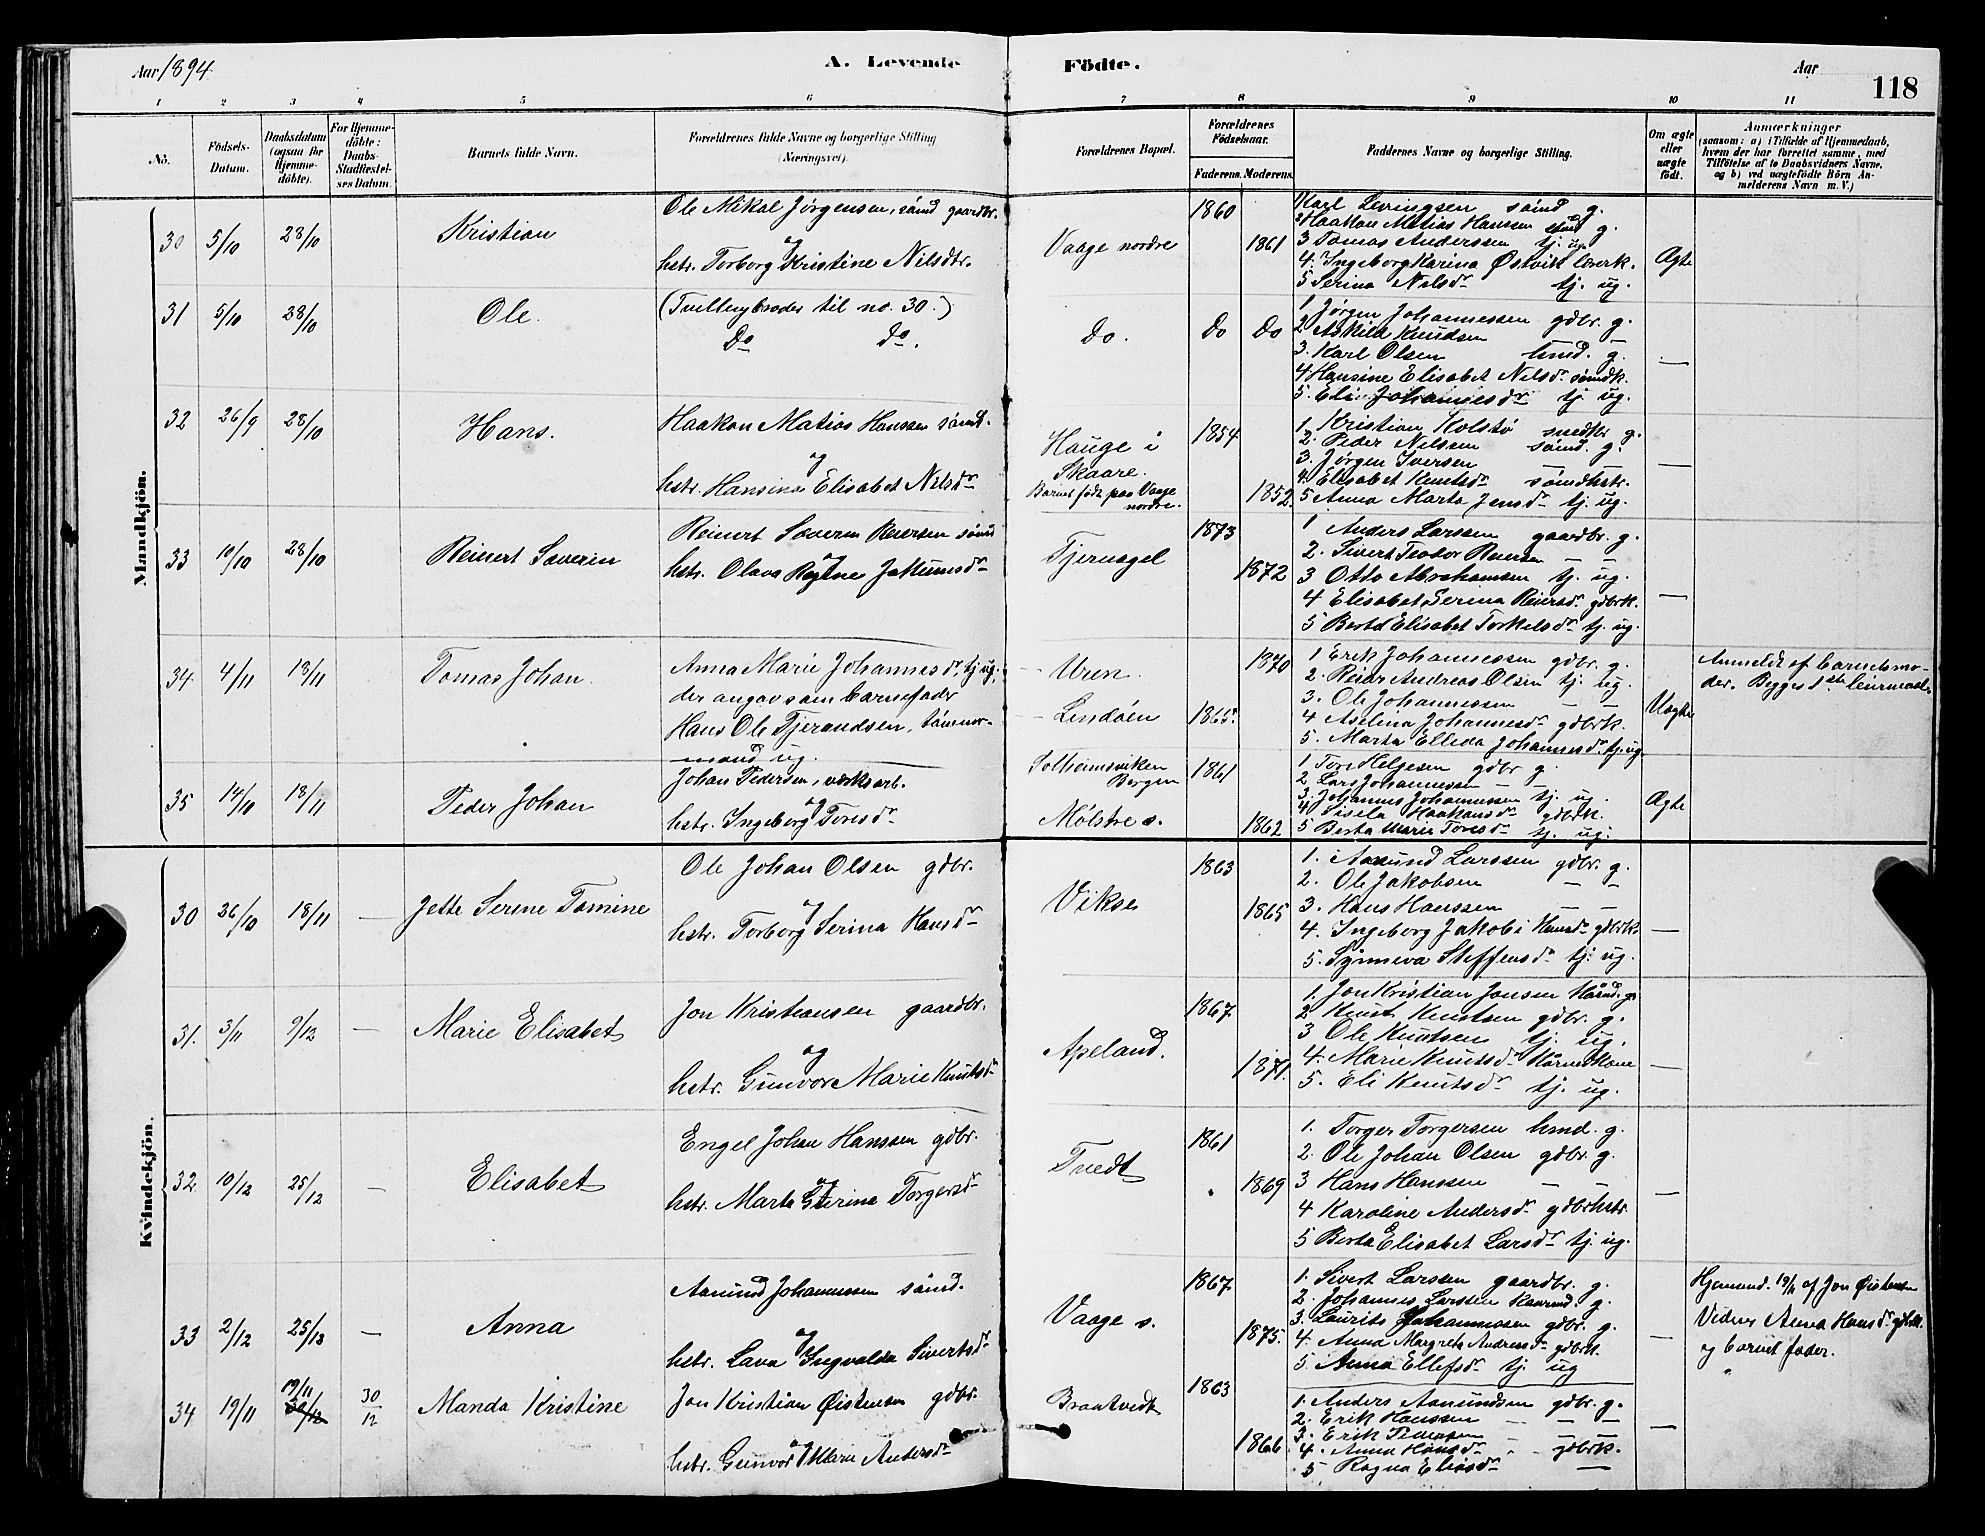 Aar 1894.
A. Levende Födte.
Aar
118
1 2 3 4 5 6 7 8 9 10 11
No.
Födsels-Datum.
Daabsdatum (ogsaa for Hjemme-döbte).
For Hjemme-döbte: Daabs-Stadfæstel-ses Datum.
Barnets fulde Navn.
Forældrenes fulde Navne og borgerlige Stilling (Næringsvei).
Forældrenes Bopæl.
Forældrenes Födselsaar.
Faderens. Moderens.
Faddernes Navne og borgerlige Stilling.
Om ægte eller uægte födt.
Anmærkninger
(saasom: a) i Tilfælde af Hjemmedaab,
hvem der har forrettet samme, med
Tilföielse af to Daabsvidners Navne,
og b) ved uægtefödte Börn An-
melderens Navn m. V.)
Mandkjön.
30 5/10 28/10 Kristian
Ole Mikal Jørgensen, sömd gaardbr.
og
hstr. Torborg Kristine Nilsdtr.
Vaage nordre
1860
1861
Karl Leringsen sömd g.
2 Haakon Matias Hanssen sömd g.
3 Tomas Anderssen tj. ug.
4. Ingeborg Karina Østvik lærerk.
5 Serina Nilsdr tj. ug.
Ægte
31 5/10 28/10 Ole.
(Tvillingbroder til no. 30.)
Do do.
Do. Do Do
1 Jørgen Johannessen gdbr. g.
2 Askild Knudsen —
3. Karl Olsen hmd. g.
4 Hansine Elisabet Nilsdr sömdk.
5. Eli Johannesdr tj ug.
—
32 26/9 28/10 Hans.
Haakon Matias Hanssen sömd.
og
hstr. Hansina Elisabet Nilsdr
Hauge i
Skaare.
Barnet født paa Vaage
nordre.
1854
1852.
1. Kristian Kolstø smedbr g.
2. Peder Nilsen sömd. g.
3. Jørgen Iversen —
4. Elisabet Knutsdr sömdhstr.
5 Anna Marta Jensdr tj. ug.
—
33 10/10 28/10 Reinert Severin
Reinert Severin Reiersen sömd
og
hstr. Olava Regine Jakimsdr
Tjernagel
1873
1872
1 Anders Larssen gaardbr. g.
2. Sivert Teodor Reiersen — —
3 Otto Abrahamsen tj. ug.
4 Elisabet Serina Reiersdr gdbrk.
5 Berta Elisabet Torkelsdr tj. ug.
—
34. 4/11 18/11 Tomas Johan.
Anna Marie Johannesdr, tj ug,
der angav som barnefader
Hans Ole Tjerandsen, tömmer-
mand ug.
— Uren.
— Lindöen
1870
1865.
1. Erik Johannessen gdbr. g.
2. Reier Andreas Olsen tj. ug.
3. Ole Johannessen — —
4 Aselina Johannesdr gdbrk.
5. Marta Ellida Johannesdr. tj. ug
Uægte
Anmeldt af barnets mo-
der. Begges 1ste leiermaal.
35 14/10 18/11 Peder Johan
Johan Pedersen, værksarb.
og
hstr. Ingeborg Toresdr
Solheimsviken
Bergen
Mølstre s.
1861
1862
1. Tore Helgesen gdbr g.
2. Lars Johannessen — —
3. Johannes Johannessen tj. ug.
4 Sisela Haakonsdr gdbrk.
5 Berta Marie Toresdr tj. ug.
Ægte
Kvindekjön.
30 26/10 18/11 — Jette Serine Tomine
Ole Johan Olsen gdbr.
og
hstr. Torborg Serina Hansdr
Vikse
1863
1865
1. Aamund Larssen gdbr. g.
2. Ole Jakobsen — —
3. Hans Hanssen — —
4. Ingeborg Jakobi Hansdr gdbrk.
5. Synneva Steffensdr tj. ug.
—
31. 3/11 9/12 — Marie Elisabet
Jon Kristiansen gaardbr.
og
hstr. Gunvor Marie Knutsdr
Apeland.
1867.
1871.
1. Jon Kristian Jonsen Kårmd. g.
2 Knut Knutsen gdbr. g.
3 Ole Knutsen tj. ug.
4. Marie Knutsdr Kårmdkone
5. Eli Knutsdr tj. ug.
—
32. 10/12 25/12 — Elisabet
Engel Johan Hanssen gdbr.
og
hstr. Marta Serine Torgersdr
Tvedt
1861
1869
1. Torger Torgersen hmd. g.
2. Ole Johan Olsen gdbr. g.
3 Hans Hanssen — —
4 Karoline Andersdr gdbrhstr.
5 Berta Elisabet Larsdr tj. ug.
—
33 2/12 25/12 — Anna
Aamund Johannessen sömd.
og
hstr. Lava Ingvalda Sivertsdr
Vaage s.
1867.
1875.
1. Sivert Larssen gaardbr. g.
2. Johannes Larssen Kaarmd. g.
3. Laurits Johannessen gdbr. g.
4 Anna Margreta Andreasdr gdbrk.
5. Anna Ellefsdr tj. ug
—
34 19/11 19/11 30/12 30/12 Manda Kristine
Jon Kristian Øistensen gdbr.
og
hstr. Gunvor Marie Andersdr
Braatvedt
1863
1866
1. Anders Aamundsen gdbr. g.
2. Erik Hanssen — —
3. Erik Pedersen — —
4. Anna Hansdr gdbrk.
5 Ragna Eliasdr —
—
Hjemmd. 19/11 af Jon Øistensen
Vidner Anna Hansdr gdbrk.
og barnets fader.